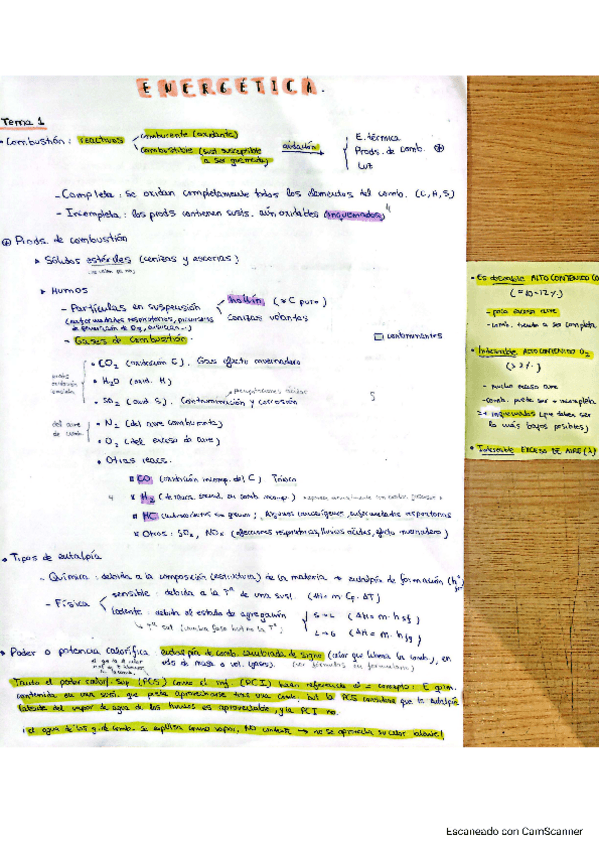 ENERGÉTICA.
Tema 1
• Combustión: reactivos
comburente (oxidante)
combustible (sust. susceptible
a ser quemada)
oxidación
E. térmica
Prods. de comb. ⊕
Luz
- Completa: se oxidan completamente todos los elementos del comb. (C, H, S)
- Incompleta: los prods contienen susts. aún oxidables (inquemados)
⊕ Prods. de combustión
▸ Sólidos estériles (cenizas y escorias)
▸ Humos
- Partículas en suspensión
hollín (≈ C puro)
cenizas volantes
- Gases de combustión.
contaminantes
• CO2 (oxidación C). Gas efecto invernadero
• H2O (oxid. H)
precipitaciones ácidas
• SO2 (oxid S). Contaminación y corrosión
del aire
de comb.
• N2 (del aire comburente)
• O2 (del exceso de aire)
• Otras reacs.
CO (oxidación incomp. del C) Tóxico
H2
HC
Otros: SO3, NOx (afecciones respiratorias, lluvias ácidas, efecto invernadero)
• Tipos de entalpía
- Química: debida a la composición (estructura) de la materia → entalpía de formación (h
- Física
sensible: debida a la Tª de una sust. (ΔH = m. Cp. ΔT)
latente: debida al estado de agregación
S→L (ΔH = m. hsf)
L→G (ΔH = m. hfg)
• Poder o potencia calorífica: entalpía de comb. cambiada de signo (calor que libera la comb.), en
uds de masa o vol. (gases). (ver fórmulas en formulario)
Tanto el poder calorf. sup. (PCS) como el inf. (PCI) hacen referencia al = concepto: E quím.
contenida en una sust. que puede aprovecharse tras una comb. but la PCS considera que la entalpía
latente del vapor de agua de los humos es aprovechable, y la PCI no.
¡el agua de los g. de comb. se expulsa como vapor, NO condensa → no se aprovecha su calor latente!
• Es deseable ALTO CONTENIDO CO
(≈ 10-12%)
- poco exceso aire
- comb. tiende a ser completa
• Indeseable ALTO CONTENIDO O2
- mucho exceso aire
- comb. puede ser + incompleta
inquemados (que deben ser
lo más bajos posibles)
• Indeseable EXCESO DE AIRE (λ)
Escaneado con CamScanner